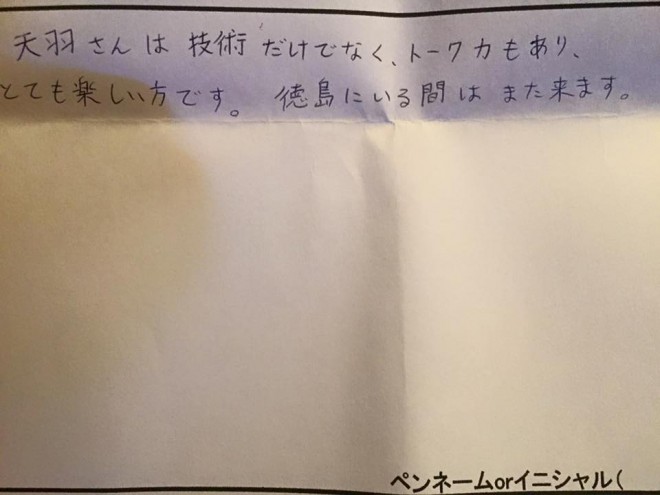 天羽さんは技術だけでなく、トーク力もあり、
とても楽しい方です。徳島にいる間はまた来ます。
ペンネームorイニシャル(